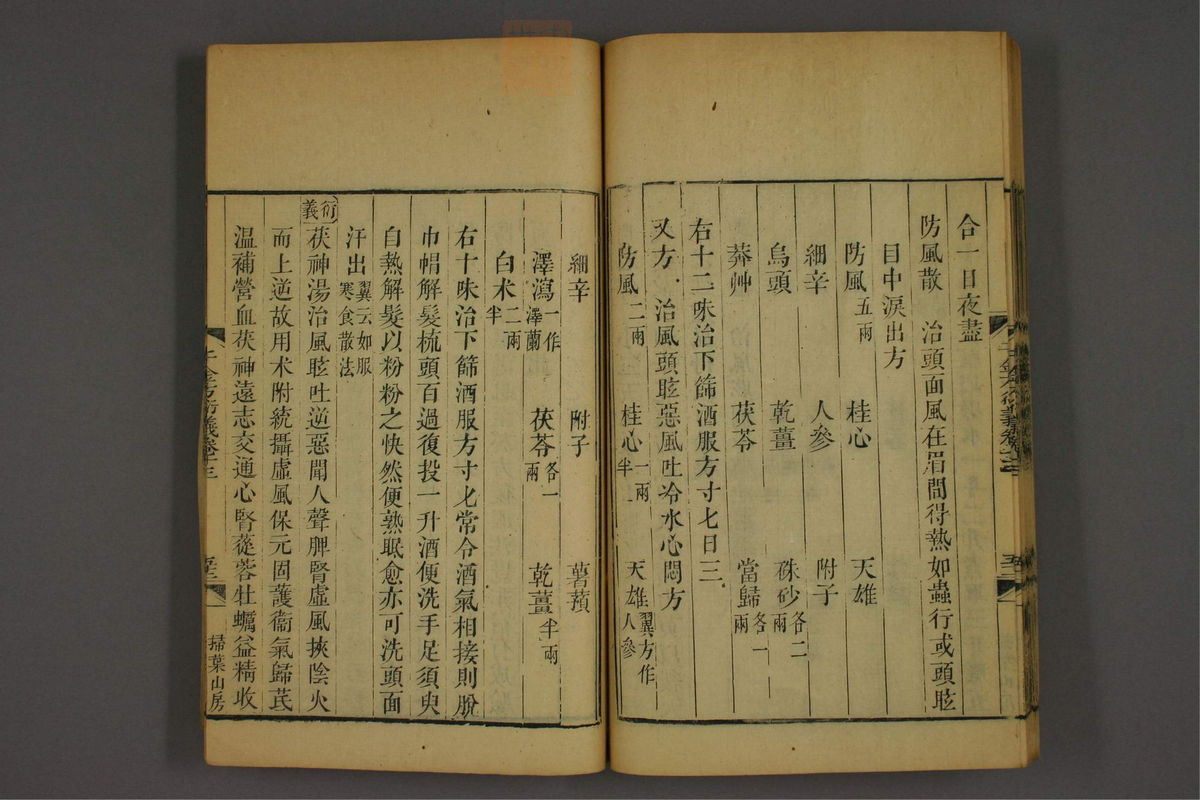 合一日夜盡
防風散　治頭面風在眉間得熱如蟲行或頭眩
目中淚出方
防風五兩　桂心　天雄
細辛　人參　附子
烏頭　乾薑　硃砂各二兩
莽艸　茯苓　當歸各一兩
右十二味治下篩酒服方寸七日三
又方　治風頭眩惡風吐冷水心悶方
防風二兩　桂心一兩半　天雄翼方作人參
細辛　附子　薯蕷
澤瀉一作澤蘭　茯苓各一兩　乾薑半兩
白术二兩半
右十味治下篩酒服方寸匕常令酒氣相接則脫
巾帽解髮梳頭百過復投一升酒便洗手足須臾
自熱解髮以粉粉之快然便熟眠愈亦可洗頭面
汗出翼云如服寒食散法
衍義
茯神湯治風眩吐逆惡聞人聲脾腎虛風挾陰火
而上逆故用术附統攝虛風保元固護衞氣歸芪
温補營血茯神遠志交通心腎蓯蓉牡蠣益精收
千金方衍義卷十三
五十二
掃葉山房